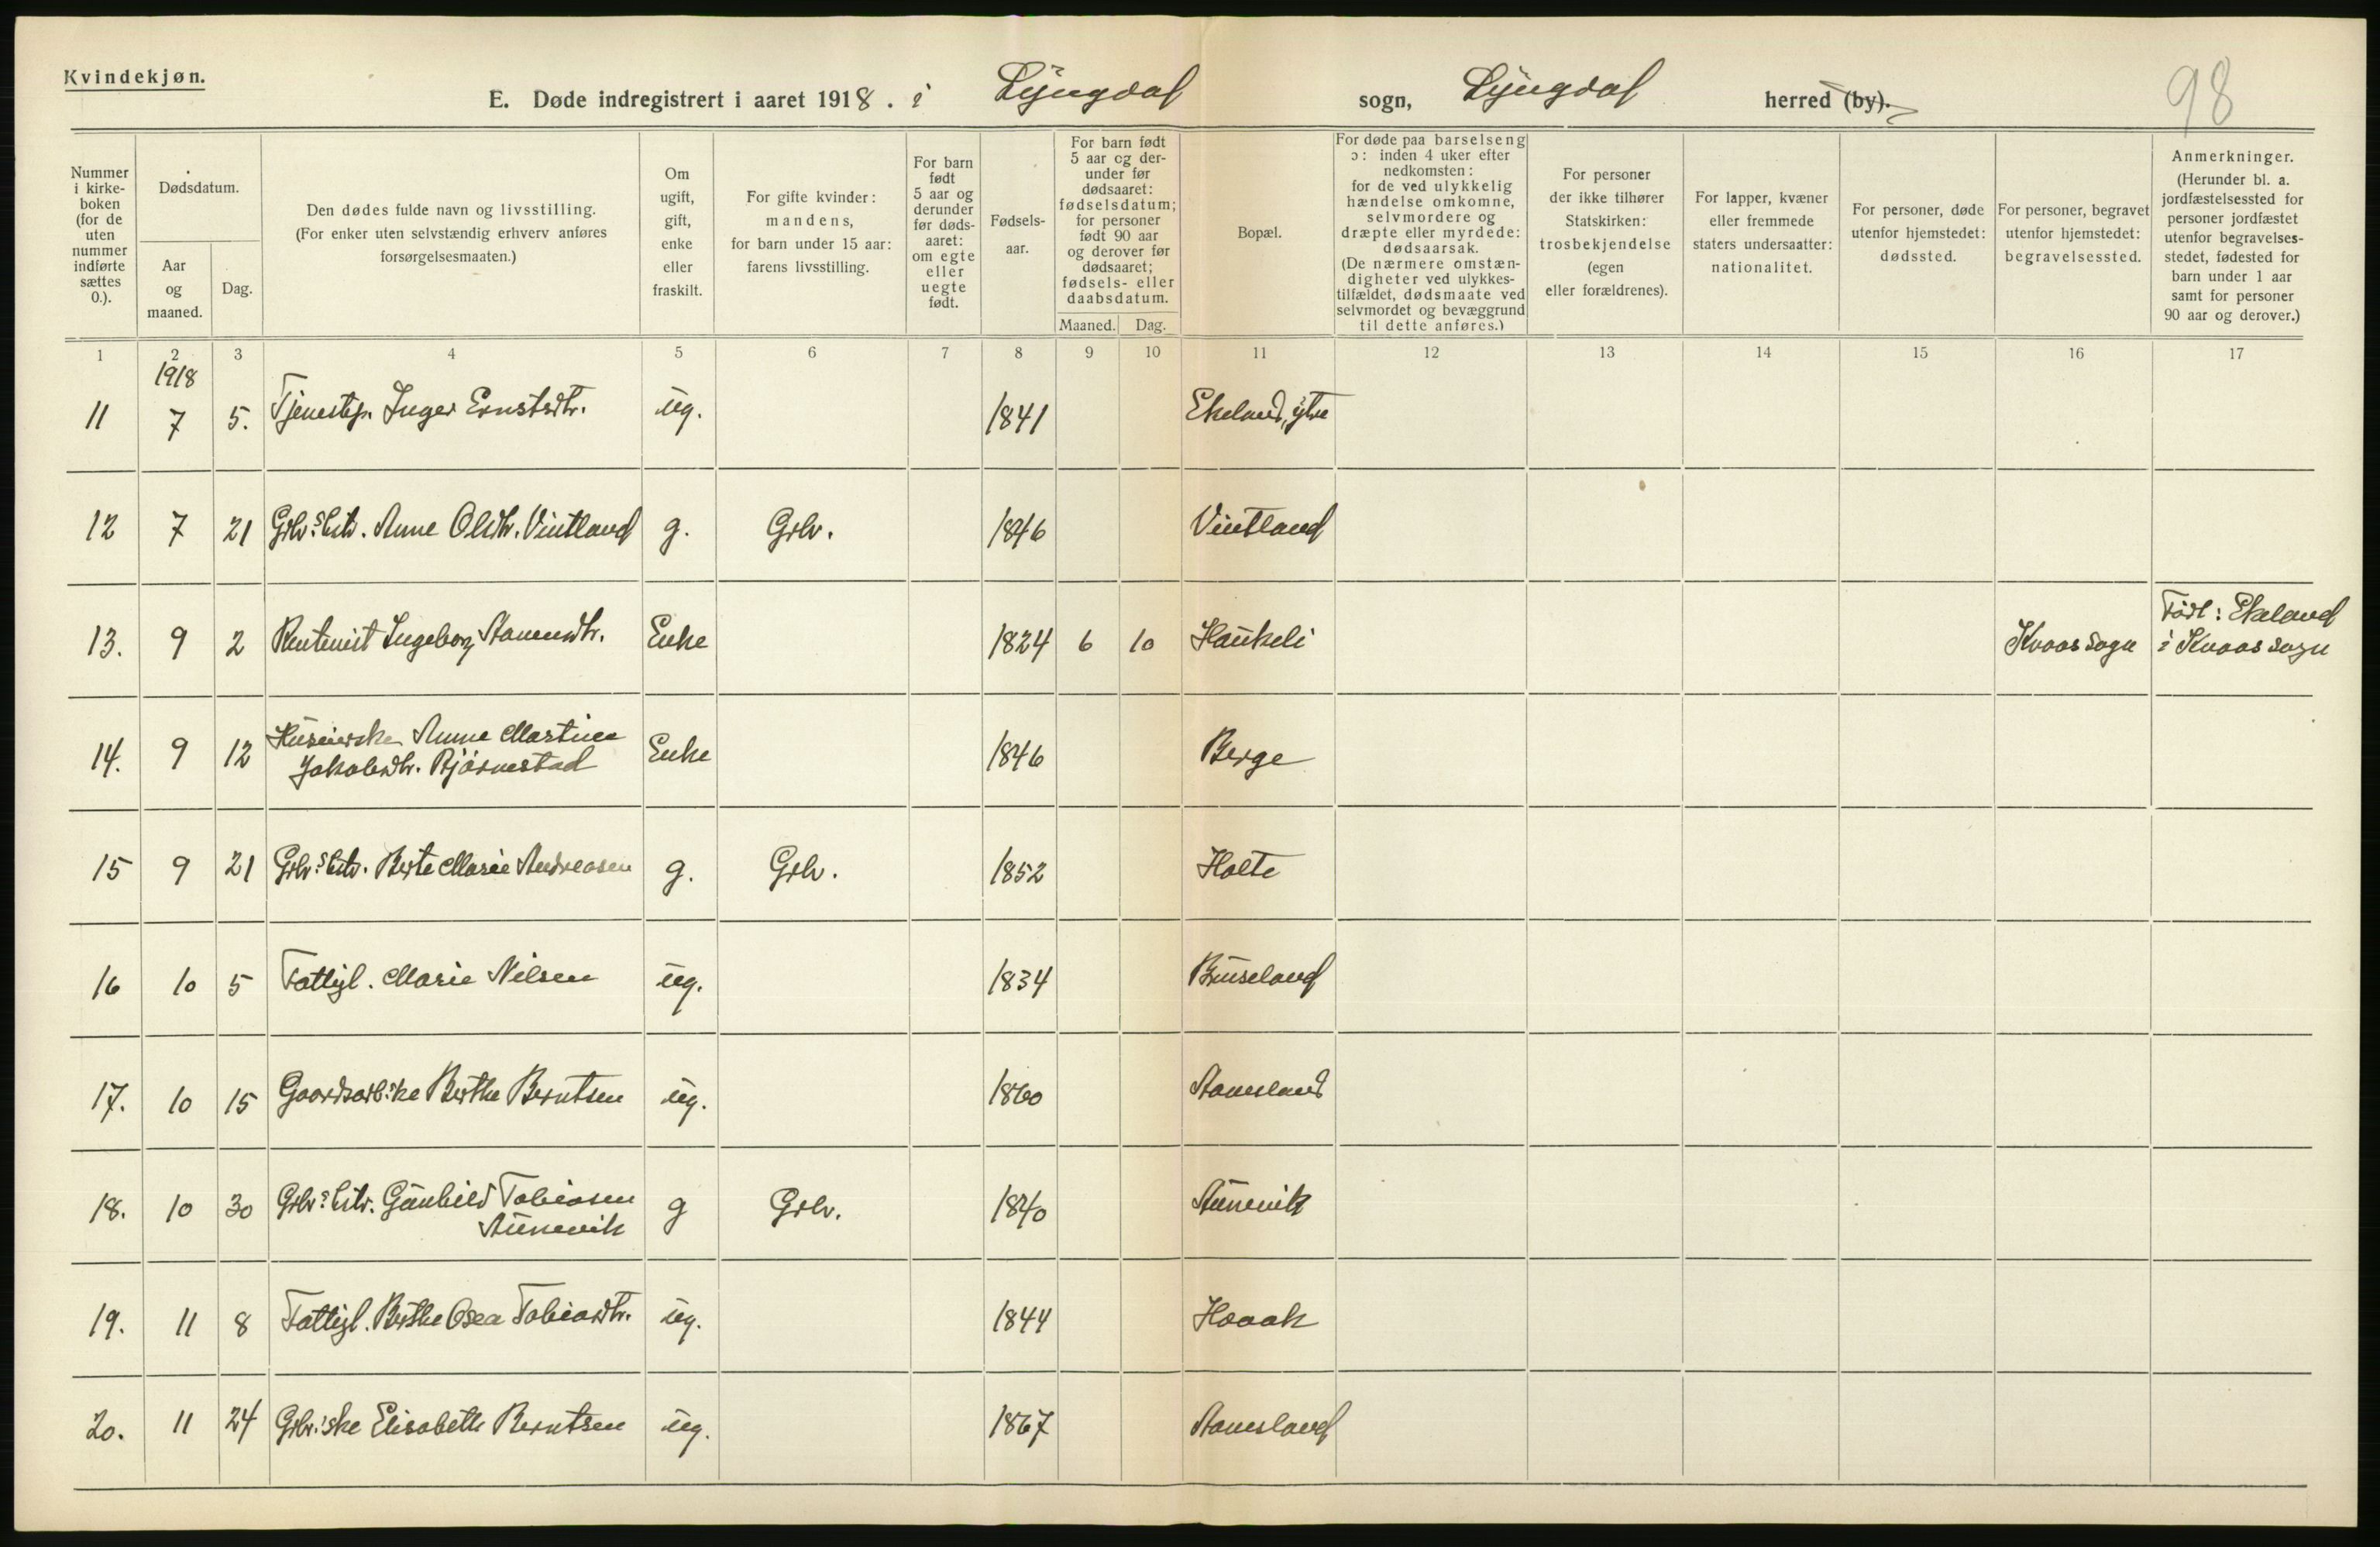 Kvindekjøn.
E. Døde indregistrert i aaret 1918. i Lyngdal sogn, Lyngdal herred (by).
98
Nummer i kirkeboken (for de uten nummer indførte sættes 0.).
Dødsdatum.
Aar og maaned.
Dag.
Den dødes fulde navn og livsstilling. (For enker uten selvstændig erhverv anføres forsørgelsesmaaten.)
Om ugift, gift, enke eller fraskilt.
For gifte kvinder: mandens, for barn under 15 aar: farens livsstilling.
For barn født 5 aar og derunder før dødsaaret: om egte eller uegte født.
Fødselsaar.
For barn født 5 aar og derunder før dødsaaret: fødselsdatum; for personer født 90 aar og derover før dødsaaret; fødsels- eller daabsdatum.
Maaned. Dag.
Bopæl.
For døde paa barselseng ɔ: inden 4 uker efter nedkomsten: for de ved ulykkelig hændelse omkomne, selvmordere og dræpte eller myrdede: dødsaarsak. (De nærmere omstændigheter ved ulykkestilfældet, dødsmaate ved selvmordet og bevæggrund til dette anføres.)
For personer der ikke tilhører Statskirken: trosbekjendelse (egen eller forældrenes).
For lapper, kvæner eller fremmede staters undersaatter: nationalitet.
For personer, døde utenfor hjemstedet: dødssted.
For personer, begravet utenfor hjemstedet: begravelsessted.
Anmerkninger. (Herunder bl. a. jordfæstelsessted for personer jordfæstet utenfor begravelsesstedet, fødested for barn under 1 aar samt for personer 90 aar og derover.)
1 2 3 4 5 6 7 8 9 10 11 12 13 14 15 16 17
1918
11 7 5. Tjenestep. Inger Ernstdtr. ug. 1841 Ekeland, ytre
12 7 21 Anne Olsdtr. Vintland g. Grbr. 1846 Vintland
13. 9 2 Rentenist Ingeborg Stanesdtr. Enke 1824 6 10 Haukeli Kvaas sogn Født: Ekeland
i Kvaas sogn
14. 9 12 Anne Martine Enke 1846 Berge
Jakobsdtr. Bjørnestad
15 9 21 Berte Marie Andreasen g. Grbr. 1852 Holte
16 10 5 Fattigl. Marie Nilsen ug. 1834 Bruseland
17. 10 15 Gaardsarb.ske Berthe Berntsen ug. 1860 Stanesland
18. 10 30 Gunhild Tobiasen g Grbr. 1840 Aunevik
Aunevik
19. 11 8 Fattigl. Berthe Osea Tobiasdtr. ug. 1844 Haaak
20. 11 24 Grbr.ske Elisabeth Berntsen ug. 1867 Stanesland